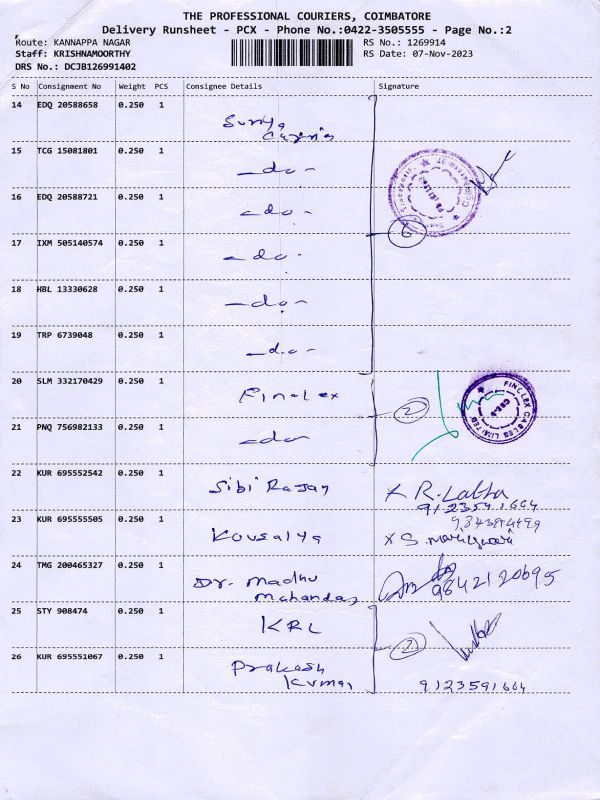 THE PROFESSIONAL COURIERS, COIMBATORE
Delivery Runsheet - PCX - Phone No.:0422-3505555 - Page No.:2
Route: KANNAPPA NAGAR RS No.: 1269914
Staff: KRISHNAMOORTHY RS Date: 07-Nov-2023
DRS No.: DCJB126991402
S No Consignment No Weight PCS Consignee Details Signature
14 EDQ 20588658 0.250 1 Surya
15 TCG 15081801 0.250 1 -do-
16 EDQ 20588721 0.250 1 -do-
6
17 IXM 505140574 0.250 1 -do-
18 HBL 13330628 0.250 1 -do-
19 TRP 6739048 0.250 1 -do-
20 SLM 332170429 0.250 1 Finolex 2 FINOLEX CABLES LIMITED
21 PNQ 756982133 0.250 1 -do-
22 KUR 695552542 0.250 1 Sibi Rajan X R. Labha
9123591664
23 KUR 695555505 0.250 1 Kousalya X S.
24 TMG 200465327 0.250 1 Dr. Madhu 9842120695
Mohandas
25 STY 908474 0.250 1 KRL 2
26 KUR 695551067 0.250 1 Prakash
Kumar 9123591664